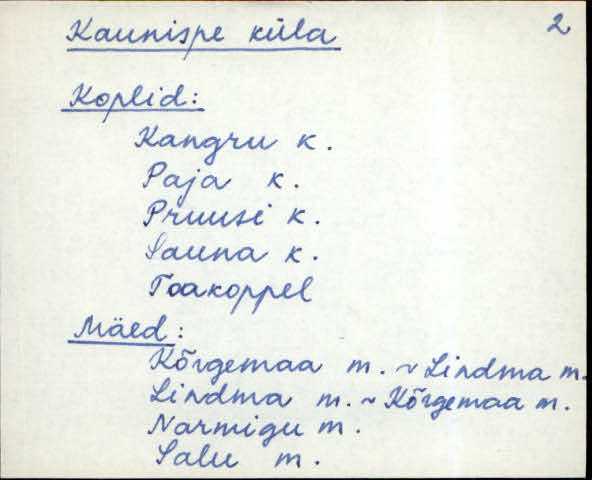 Kaunispe küla 2
Koplid:
Kangru k.
Paja k.
Pruusi k.
Sauna k.
Toakoppel
Mäed:
Kõrgemaa m. ~ Lindma m.
Lindma m. ~ Kõrgemaa m.
Narmigu m.
Salu m.